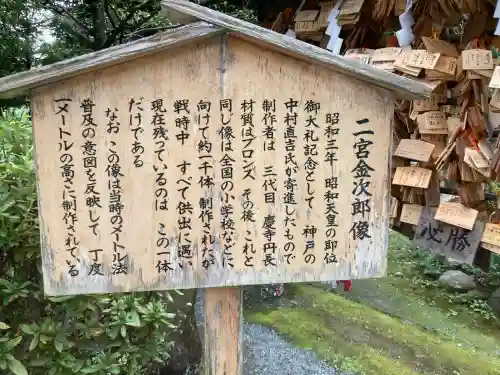 二宮金次郎像
昭和三年　昭和天皇の即位
御大礼記念として　神戸の
中村直吉氏が寄進したもので
制作者は　三代目　慶寺丹長
材質はブロンズ　その後　これと
同じ像は全国の小学校などに
向けて約一千体　制作されたが
戦時中　すべて供出に遇い
現在残っているのは　この一体
だけである
なお　この像は当時のメートル法
普及の意図を反映して　丁度
一メートルの高さに制作されている
必勝